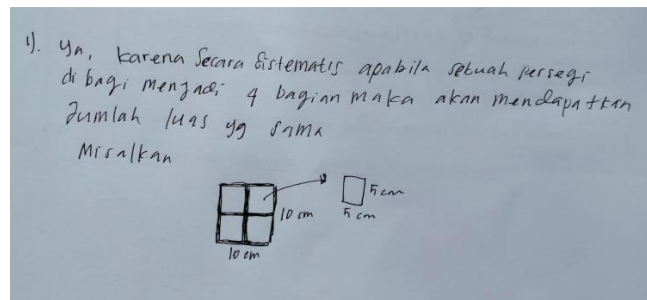 1). Ya, karena secara sistematis apabila sebuah persegi
di bagi menjadi 4 bagian maka akan mendapatkan
Jumlah luas yg sama
Misalkan
5 cm
10 cm
5 cm
10 cm